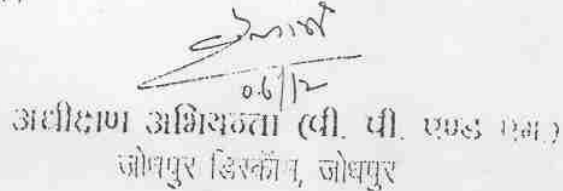 06/12
अधीक्षण अभियन्ता (वी. पी. एण्ड एम.)
जोधपुर डिस्कॉम, जोधपुर